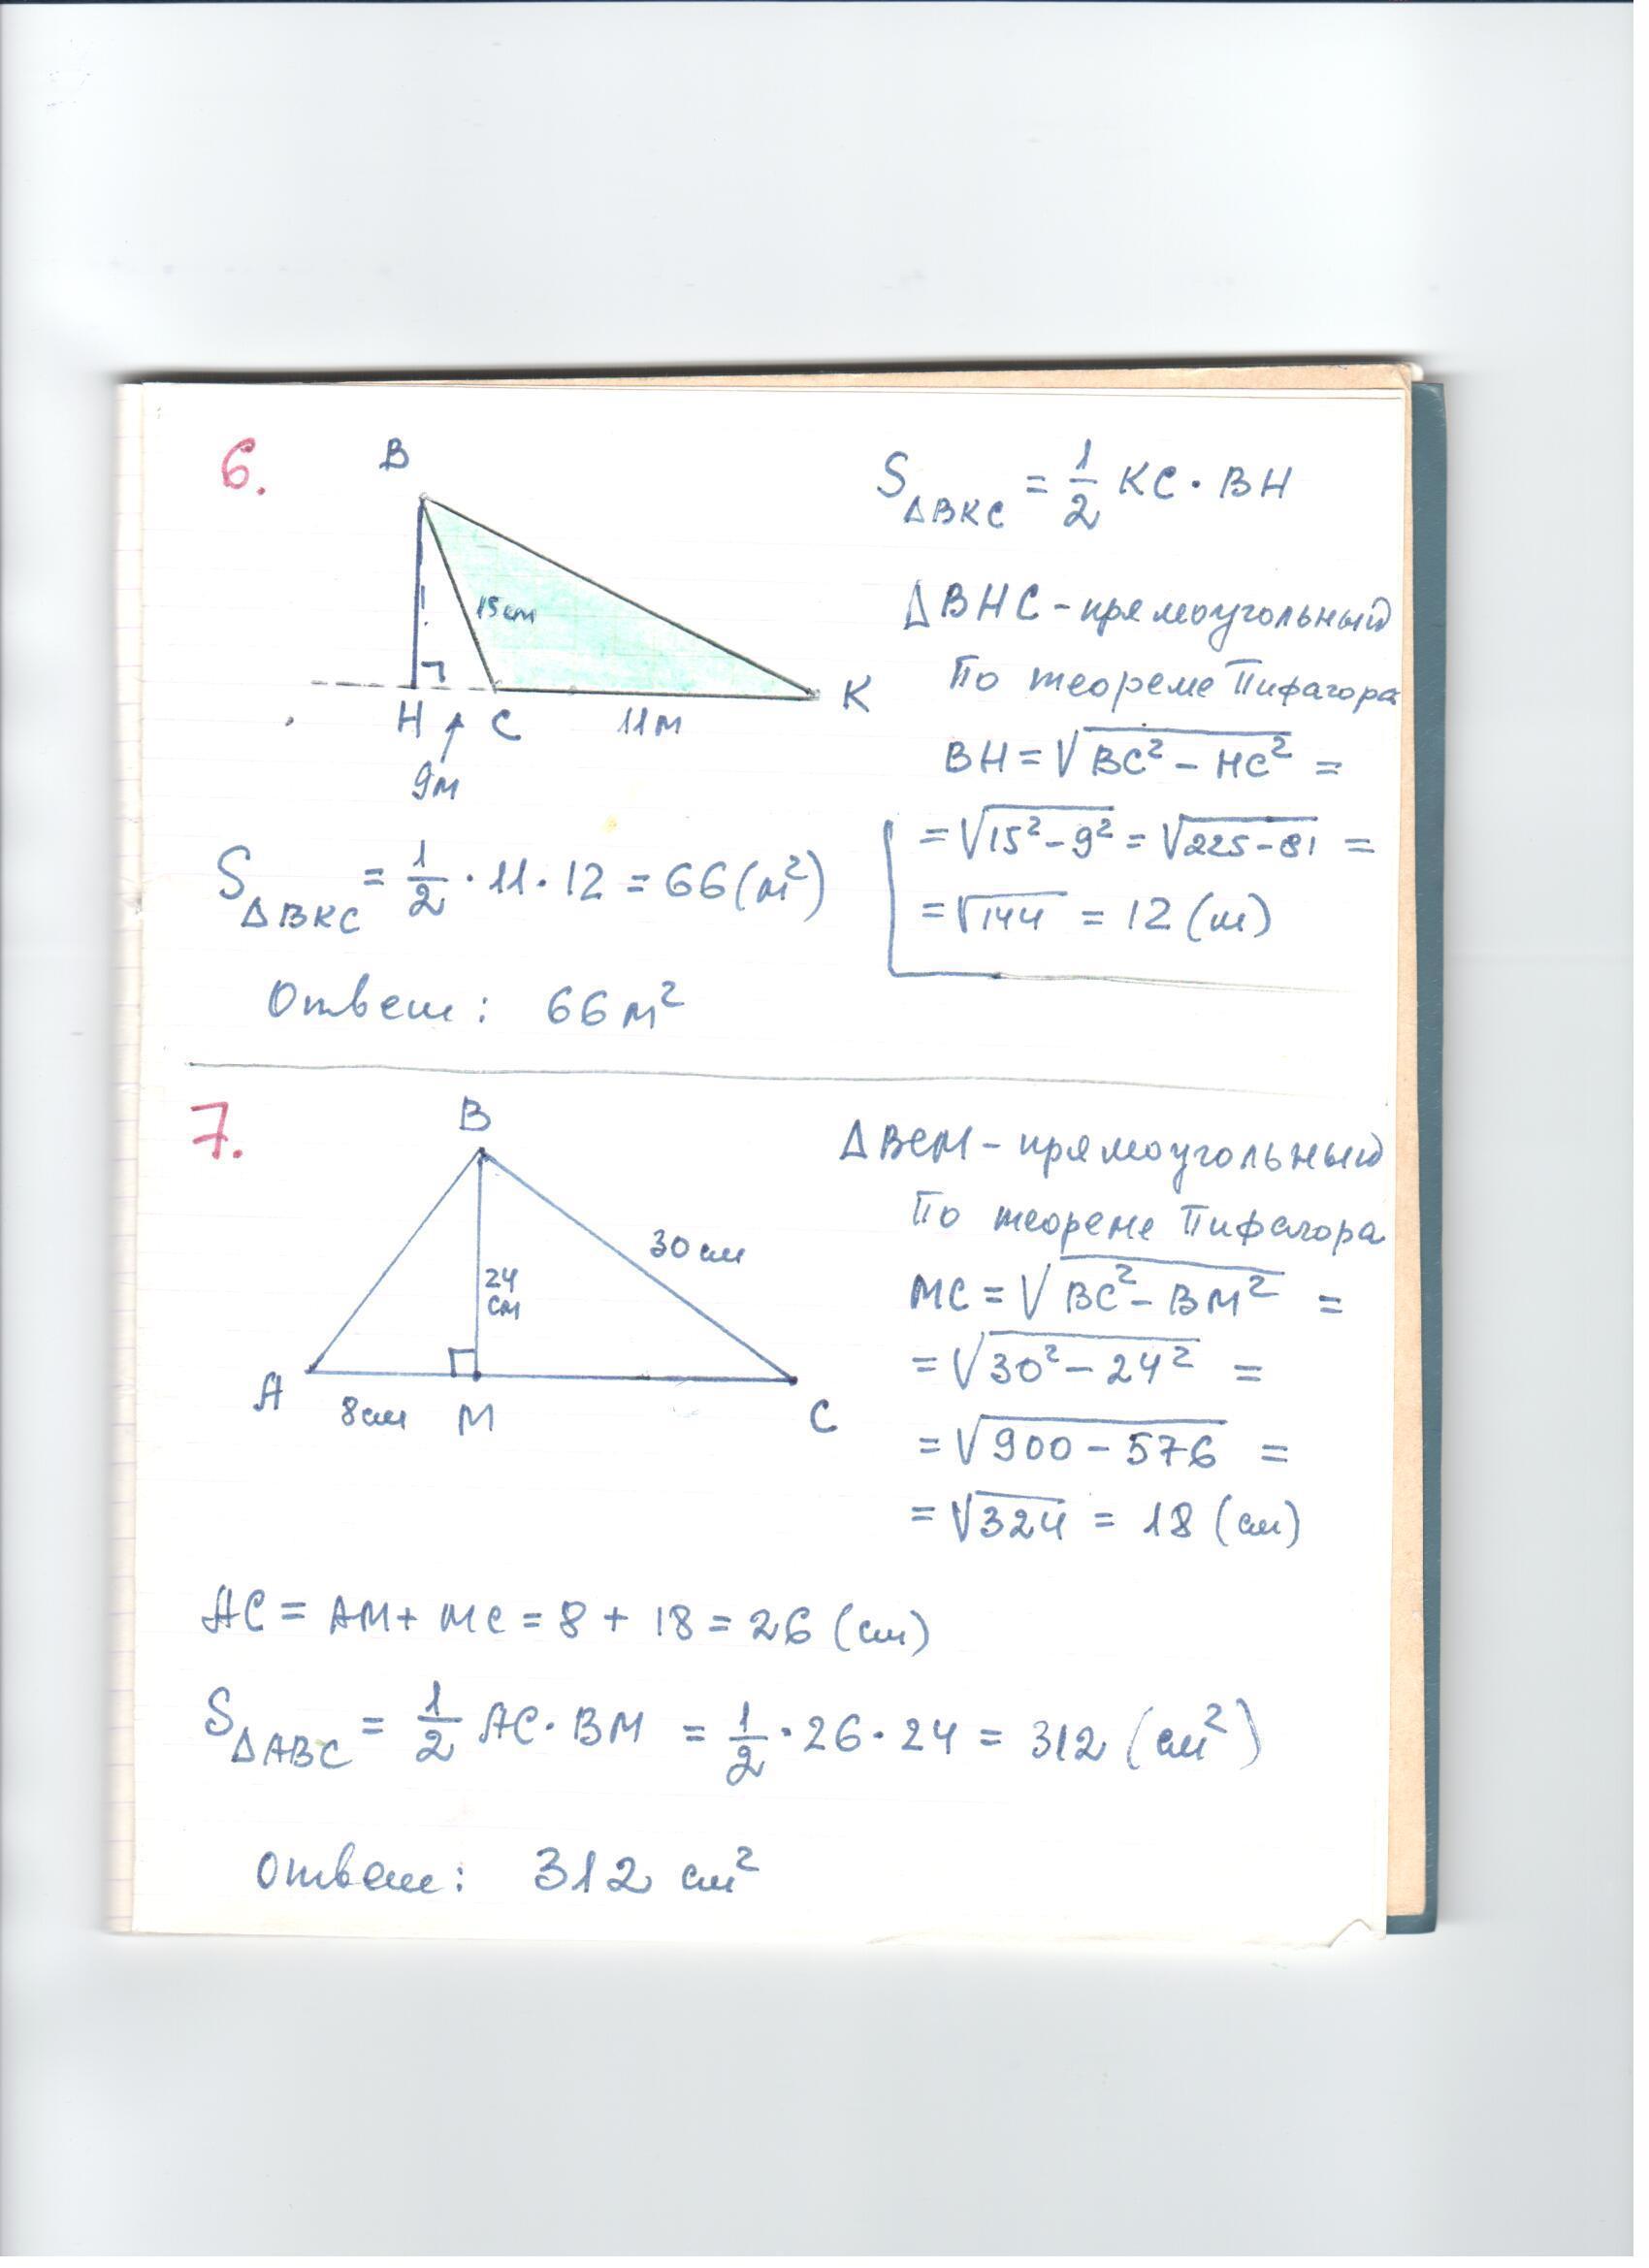 6.
B
15см
H
C
11м
K
9м
S△BKC = 1/2 KC · BH
△BHC - прямоугольный
По теореме Пифагора
BH = √(BC² - HC²) =
= √(15² - 9²) = √(225 - 81) =
= √144 = 12 (м)
S△BKC = 1/2 · 11 · 12 = 66 (м²)
Ответ: 66 м²
7.
B
30 см
24
см
A
8см
M
C
△BCM - прямоугольный
По теореме Пифагора
MC = √(BC² - BM²) =
= √(30² - 24²) =
= √(900 - 576) =
= √324 = 18 (см)
AC = AM + MC = 8 + 18 = 26 (см)
S△ABC = 1/2 AC · BM = 1/2 · 26 · 24 = 312 (см²)
Ответ: 312 см²